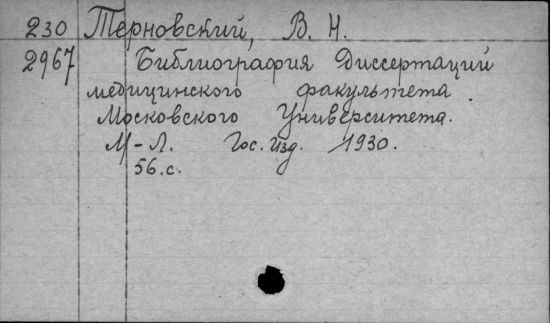 230 Терновский, В. Н.
2967 Библиография Диссертаций
медицинского факультета
Московского Университета.
М-Л. Гос. Изд. 1930.
56.с.